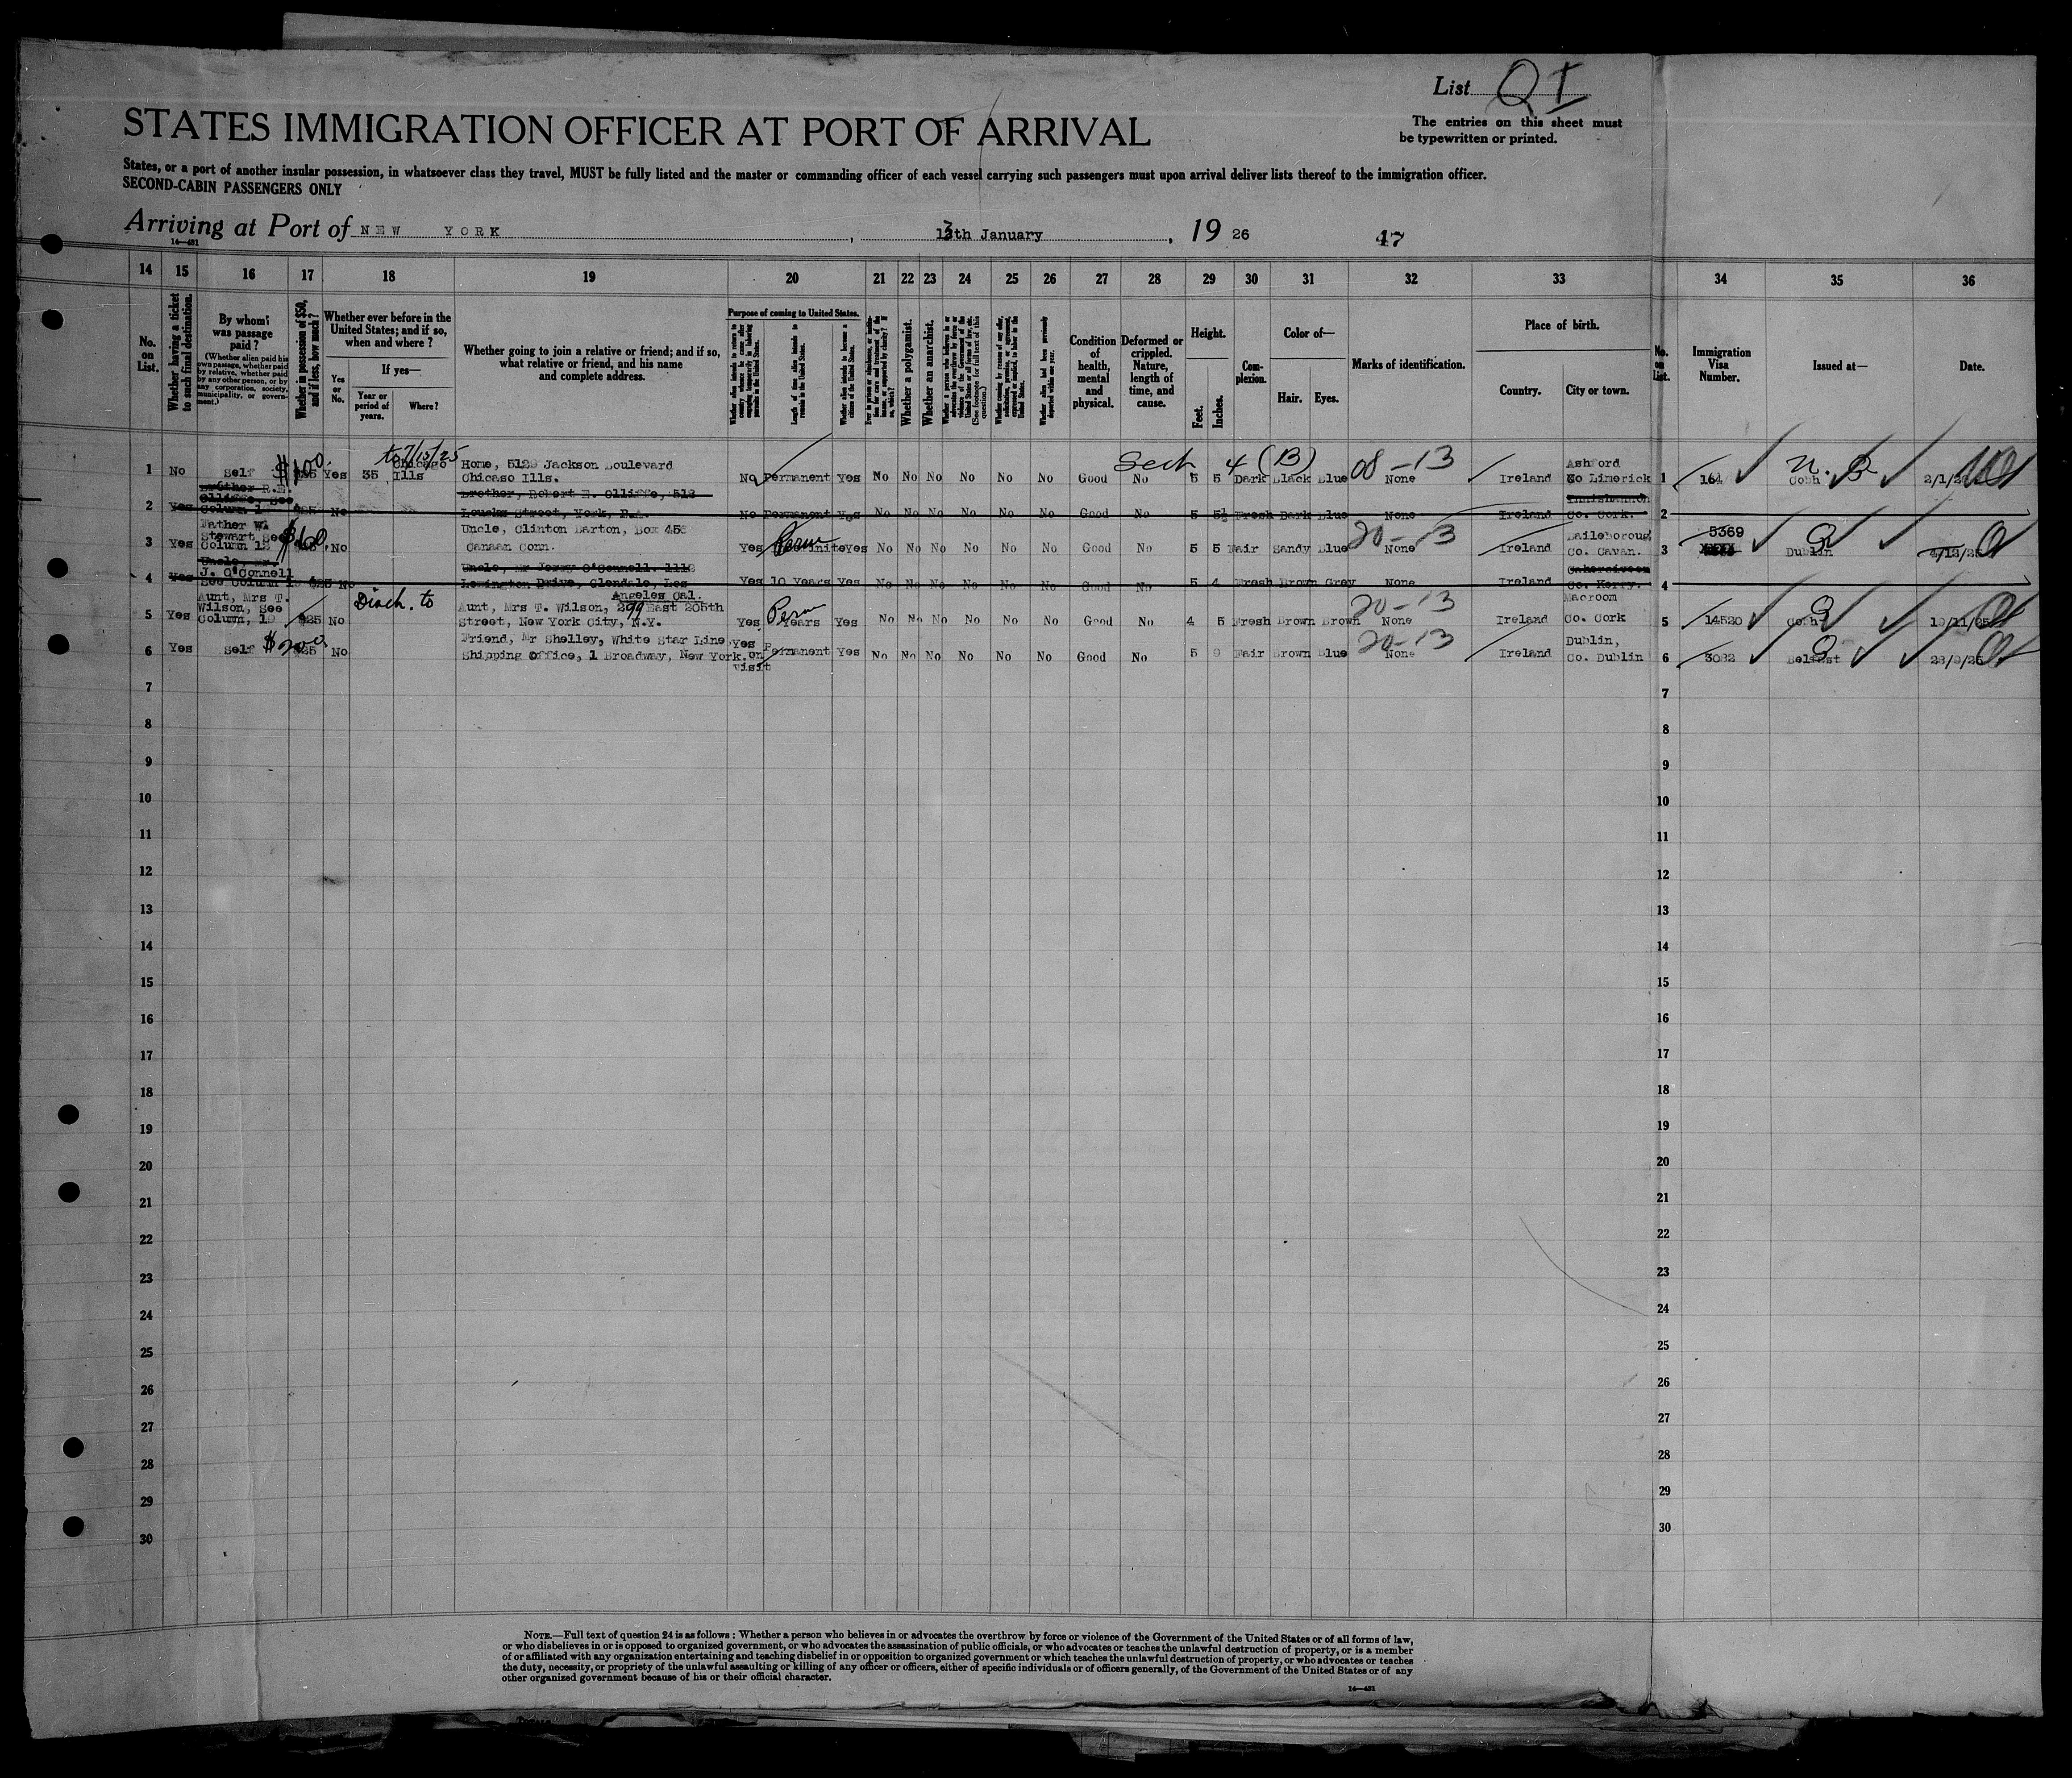 List QI
The entries on this sheet must
be typewritten or printed.
STATES IMMIGRATION OFFICER AT PORT OF ARRIVAL
States, or a port of another insular possession, in whatsoever class they travel, MUST be fully listed and the master or commanding officer of each vessel carrying such passengers must upon arrival deliver lists thereof to the immigration officer.
SECOND-CABIN PASSENGERS ONLY
Arriving at Port of NEW YORK, 13th January, 19 26
47
14—481
14 15 16 17 18 19 20 21 22 23 24 25 26 27 28 29 30 31 32 33 34 35 36
No. on List.
Whether having a ticket to such final destination.
By whom was passage paid?
(Whether alien paid his own passage, whether paid by relative, whether paid by any other person, or by any corporation, society, municipality, or government.)
Whether in possession of $50, and if less, how much?
Whether ever before in the United States; and if so, when and where?
Yes or No.
If yes—
Year or period of years.
Where?
Whether going to join a relative or friend; and if so, what relative or friend, and his name and complete address.
Purpose of coming to United States.
Length of time alien intends to remain in the United States.
Whether alien intends to become a citizen of the United States.
Whether a polygamist.
Whether an anarchist.
Condition of health, mental and physical.
Deformed or crippled. Nature, length of time, and cause.
Height.
Feet.
Inches.
Complexion.
Color of—
Hair.
Eyes.
Marks of identification.
Place of birth.
Country.
City or town.
No. on List.
Immigration Visa Number.
Issued at—
Date.
to 7/15/25
Sect 4 (B) 08-13
1 No Self $100 Yes 35 Chicago Ills Home, 5129 Jackson Boulevard
Chicago Ills. No Permanent Yes No No No No No No Good No 5 5 Dark Black Blue None Ireland Ashford Co Limerick 1 164 Cobh
2 Yes Brother R.E. Olliffe, See Column 19 $25 No Brother, Robert E. Olliffe, 513
Loucks Street, York, P.A. No Permanent Yes Good No 5 5½ Fresh Dark Blue None Ireland Co. Cork. 2
3 Yes Father Stewart See Column 19 No Uncle, Clinton Barton, Box 453
Canaan Conn. Yes Perm Yes No No No No No No Good No 5 5 Fair Sandy Blue 20-13 None Ireland Co. Cavan. 3 5369 Dublin
4 Yes Uncle, Mr. J. O'Connell See Column 19 $25 No Uncle, Mr Jerry O'Connell. 1112
Lexington Drive, Glendale, Los
Angeles Cal. Yes 10 Years Yes No No No No No No Good No 5 4 Fresh Brown Grey None Ireland Cahersiveen Co. Kerry. 4
Disch. to
5 Yes Aunt, Mrs T. Wilson, See Column, 19 $25 No Aunt, Mrs T. Wilson, 299 East 205th
Street, New York City, N.Y. Yes Perm Years Yes No No No No No No Good No 4 5 Fresh Brown Brown 20-13 None Ireland Macroom Co. Cork 5 14520 Cobh
6 Yes Self $200 No Friend, Mr Shelley, White Star Line
Shipping Office, 1 Broadway, New York. Yes on visit Permanent Yes No No No No No No Good No 5 Fair Brown Blue 20-13 None Ireland Dublin, Co. Dublin 6 3082 Belfast
7 7
8 8
9 9
10 10
11 11
12 12
13 13
14 14
15 15
16 16
17 17
18 18
19 19
20 20
21 21
22 22
23 23
24 24
25 25
26 26
27 27
28 28
29 29
30 30
NOTE.—Full text of question 24 is as follows: Whether a person who believes in or advocates the overthrow by force or violence of the Government of the United States or of all forms of law,
or who disbelieves in or is opposed to organized government, or who advocates the assassination of public officials, or who advocates or teaches the unlawful destruction of property, or is a member
of or affiliated with any organization entertaining and teaching disbelief in or opposition to organized government or which teaches the unlawful destruction of property, or who advocates or teaches
the duty, necessity, or propriety of the unlawful assaulting or killing of any officer or officers, either of specific individuals or of officers generally, of the Government of the United States or of any
other organized government because of his or their official character.
14—481